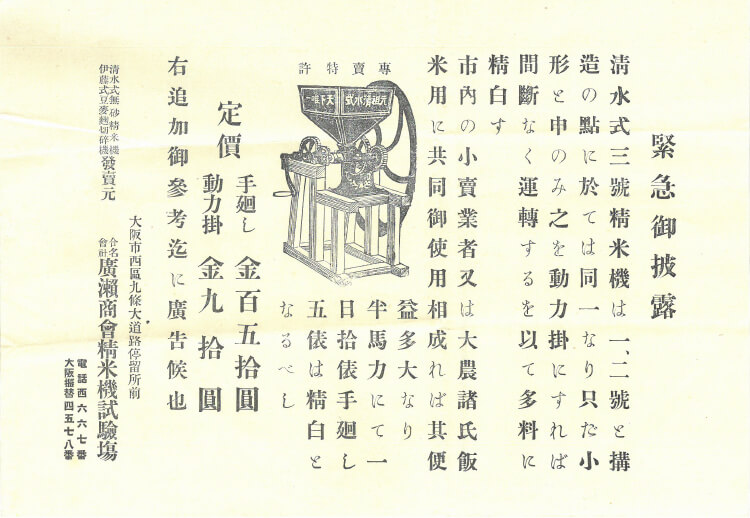 緊急御披露
清水式三號精米機は一、二號と搆
造の點に於ては同一なり只だ小
形と申のみ之を動力掛にすれば
間斷なく運轉するを以て多料に
精白す
市內の小賣業者又は大農諸氏飯
米用に共同御使用相成れば其便
益多大なり
半馬力にて一
日拾俵手廻し
五俵は精白と
なるべし
專賣特許
元祖清水式
天下唯一
定價
手廻し 金百五拾圓
動力掛 金九拾圓
右追加御參考迄に廣告候也
大阪市西區九條大道路停留所前
清水式無砂精米機
伊藤式豆麥麹切碎機
發賣元
合名會社廣瀨商會精米機試驗塲
電話西六六七番
大阪振替四五七八番